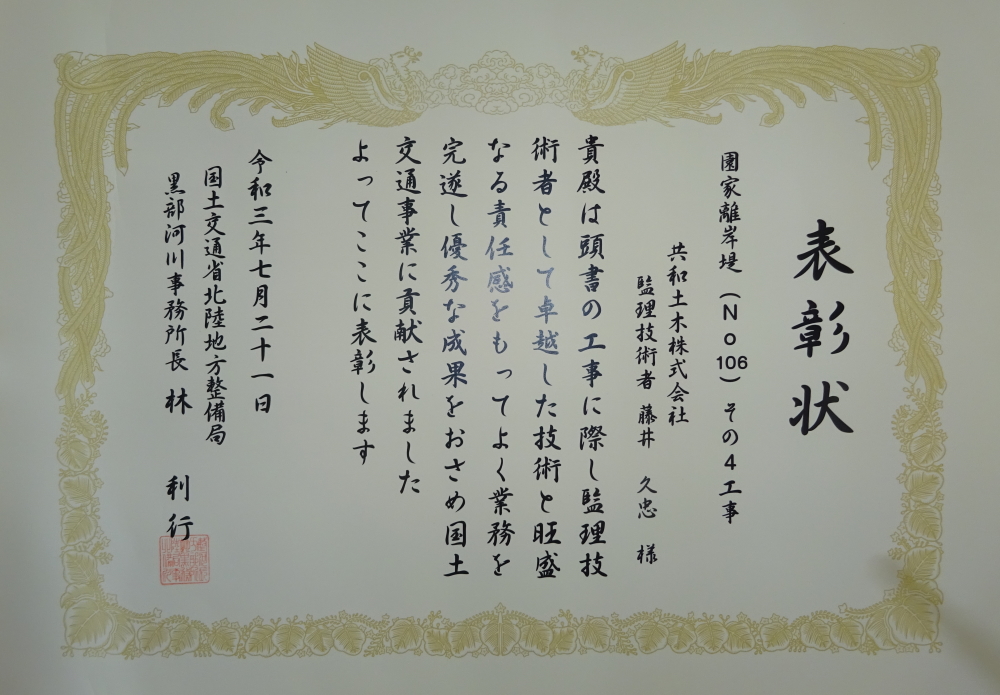 表彰状
園家離岸堤（No106）その4工事
共和土木株式会社
監理技術者 藤井 久忠 様
貴殿は頭書の工事に際し監理技
術者として卓越した技術と旺盛
なる責任感をもってよく業務を
完遂し優秀な成果をおさめ国土
交通事業に貢献されました
よってここに表彰します
令和三年七月二十一日
国土交通省北陸地方整備局
黒部河川事務所長 林 利行